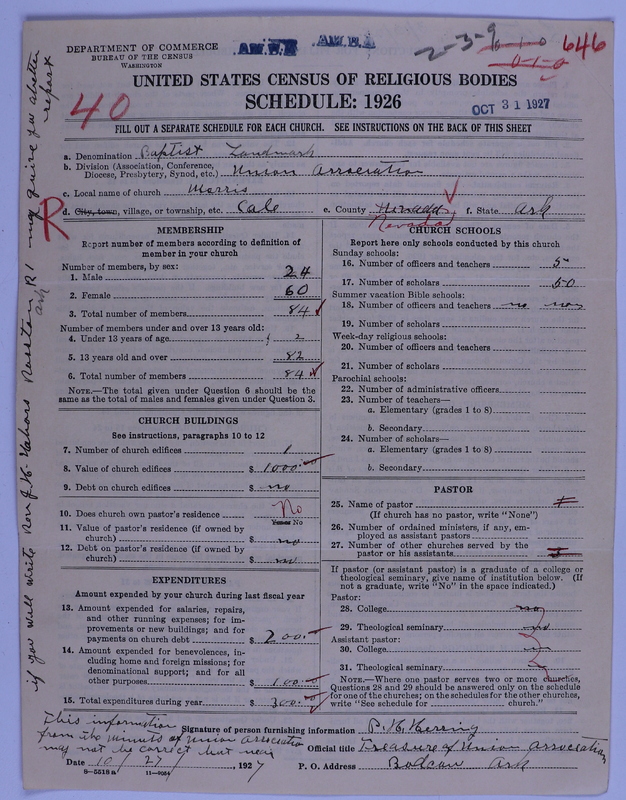 DEPARTMENT OF COMMERCE
BUREAU OF THE CENSUS
WASHINGTON
2-3-9
0-1-0
0-1-0
646
UNITED STATES CENSUS OF RELIGIOUS BODIES
SCHEDULE: 1926
40
OCT 31 1927
FILL OUT A SEPARATE SCHEDULE FOR EACH CHURCH. SEE INSTRUCTIONS ON THE BACK OF THIS SHEET
a. Denomination Baptist Landmark
b. Division (Association, Conference, Diocese, Presbytery, Synod, etc.) Union Association
c. Local name of church Morris
R
d. City, town, village, or township, etc. Cale e. County Nevada f. State Ark
MEMBERSHIP
Report number of members according to definition of
member in your church
Number of members, by sex:
1. Male 24
2. Female 60
3. Total number of members 84
Number of members under and over 13 years old:
4. Under 13 years of age 2
5. 13 years old and over 82
6. Total number of members 84
NOTE.—The total given under Question 6 should be the
same as the total of males and females given under Question 3.
CHURCH BUILDINGS
See instructions, paragraphs 10 to 12
7. Number of church edifices 1
8. Value of church edifices $ 1000
9. Debt on church edifices $ no
10. Does church own pastor's residence No
Yes or No
11. Value of pastor's residence (if owned by
church) $ no
12. Debt on pastor's residence (if owned by
church) $ no
EXPENDITURES
Amount expended by your church during last fiscal year
13. Amount expended for salaries, repairs,
and other running expenses; for im-
provements or new buildings; and for
payments on church debt $ 200
14. Amount expended for benevolences, in-
cluding home and foreign missions; for
denominational support; and for all
other purposes $ 100
15. Total expenditures during year $ 300
CHURCH SCHOOLS
Report here only schools conducted by this church
Sunday schools:
16. Number of officers and teachers 5
17. Number of scholars 50
Summer vacation Bible schools:
18. Number of officers and teachers no
19. Number of scholars
Week-day religious schools:
20. Number of officers and teachers
21. Number of scholars
Parochial schools:
22. Number of administrative officers
23. Number of teachers—
a. Elementary (grades 1 to 8)
b. Secondary
24. Number of scholars—
a. Elementary (grades 1 to 8)
b. Secondary
PASTOR
25. Name of pastor
(If church has no pastor, write "None")
26. Number of ordained ministers, if any, em-
ployed as assistant pastors
27. Number of other churches served by the
pastor or his assistants
If pastor (or assistant pastor) is a graduate of a college or
theological seminary, give name of institution below. (If
not a graduate, write "No" in the space indicated.)
Pastor:
28. College no
29. Theological seminary no
Assistant pastor:
30. College
31. Theological seminary
NOTE.—Where one pastor serves two or more churches,
Questions 28 and 29 should be answered only on the schedule
for one of the churches; on the schedules for the other churches,
write "See schedule for church."
This information
from the minuts of Union Association
may not be correct but near
Signature of person furnishing information P. H. Herring
Official title Treasure of Union Association
Date 10/27/, 1927 P. O. Address Bodcaw Ark
8-5518a 11-9064
if you will write Rev J. W. R 1 Ark may give you a better report